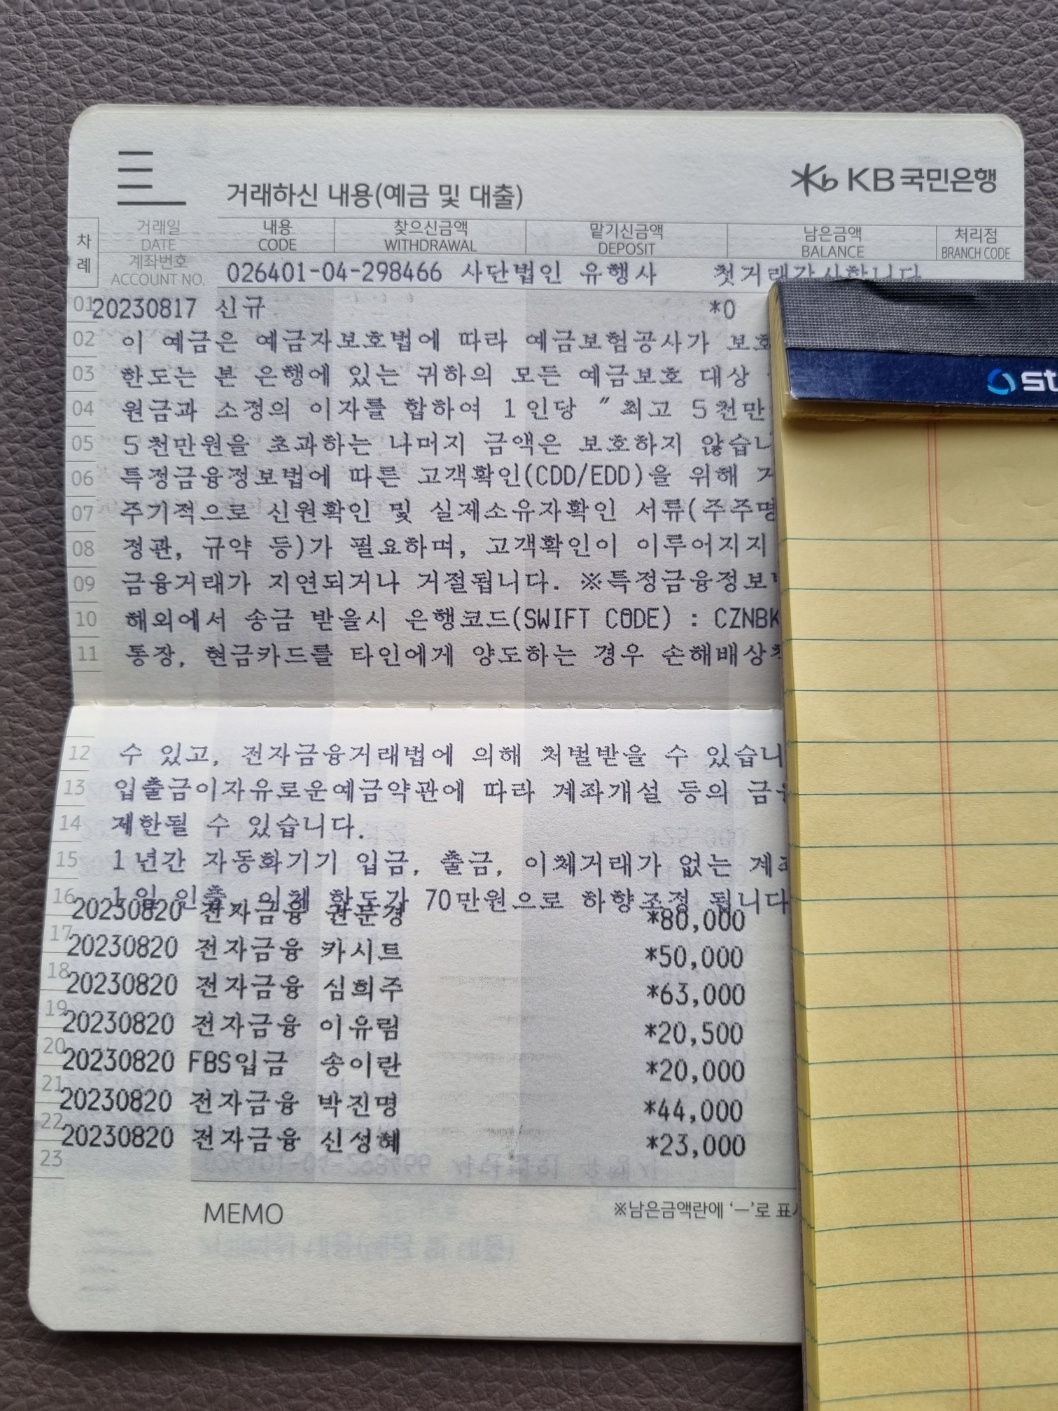 거래하신 내용(예금 및 대출) KB국민은행
차례 거래일 DATE 내용 CODE 찾으신금액 WITHDRAWAL 맡기신금액 DEPOSIT 남은금액 BALANCE 처리점 BRANCH CODE
계좌번호 ACCOUNT NO. 026401-04-298466 사단법인 유행사 첫거래감사합니다
01 20230817 신규 *0
02 이 예금은 예금자보호법에 따라 예금보험공사가 보호
03 한도는 본 은행에 있는 귀하의 모든 예금보호 대상
04 원금과 소정의 이자를 합하여 1인당 "최고 5천만
05 5천만원을 초과하는 나머지 금액은 보호하지 않습니
06 특정금융정보법에 따른 고객확인(CDD/EDD)을 위해
07 주기적으로 신원확인 및 실제소유자확인 서류(주주명
08 정관, 규약 등)가 필요하며, 고객확인이 이루어지지
09 금융거래가 지연되거나 거절됩니다. ※특정금융정보
10 해외에서 송금 받을시 은행코드(SWIFT CODE) : CZNBK
11 통장, 현금카드를 타인에게 양도하는 경우 손해배상
12 수 있고, 전자금융거래법에 의해 처벌받을 수 있습니
13 입출금이자유로운예금약관에 따라 계좌개설 등의 금
14 제한될 수 있습니다.
15 1년간 자동화기기 입금, 출금, 이체거래가 없는 계
16 1일 인출, 이체 한도가 70만원으로 하향조정 됩니다
20230820 전자금융 권문경 *80,000
17 20230820 전자금융 카시트 *50,000
18 20230820 전자금융 심희주 *63,000
19 20230820 전자금융 이유림 *20,500
20 20230820 FBS입금 송이란 *20,000
21 20230820 전자금융 박진명 *44,000
22 20230820 전자금융 신성혜 *23,000
23
MEMO ※남은금액란에 '—'로 표시